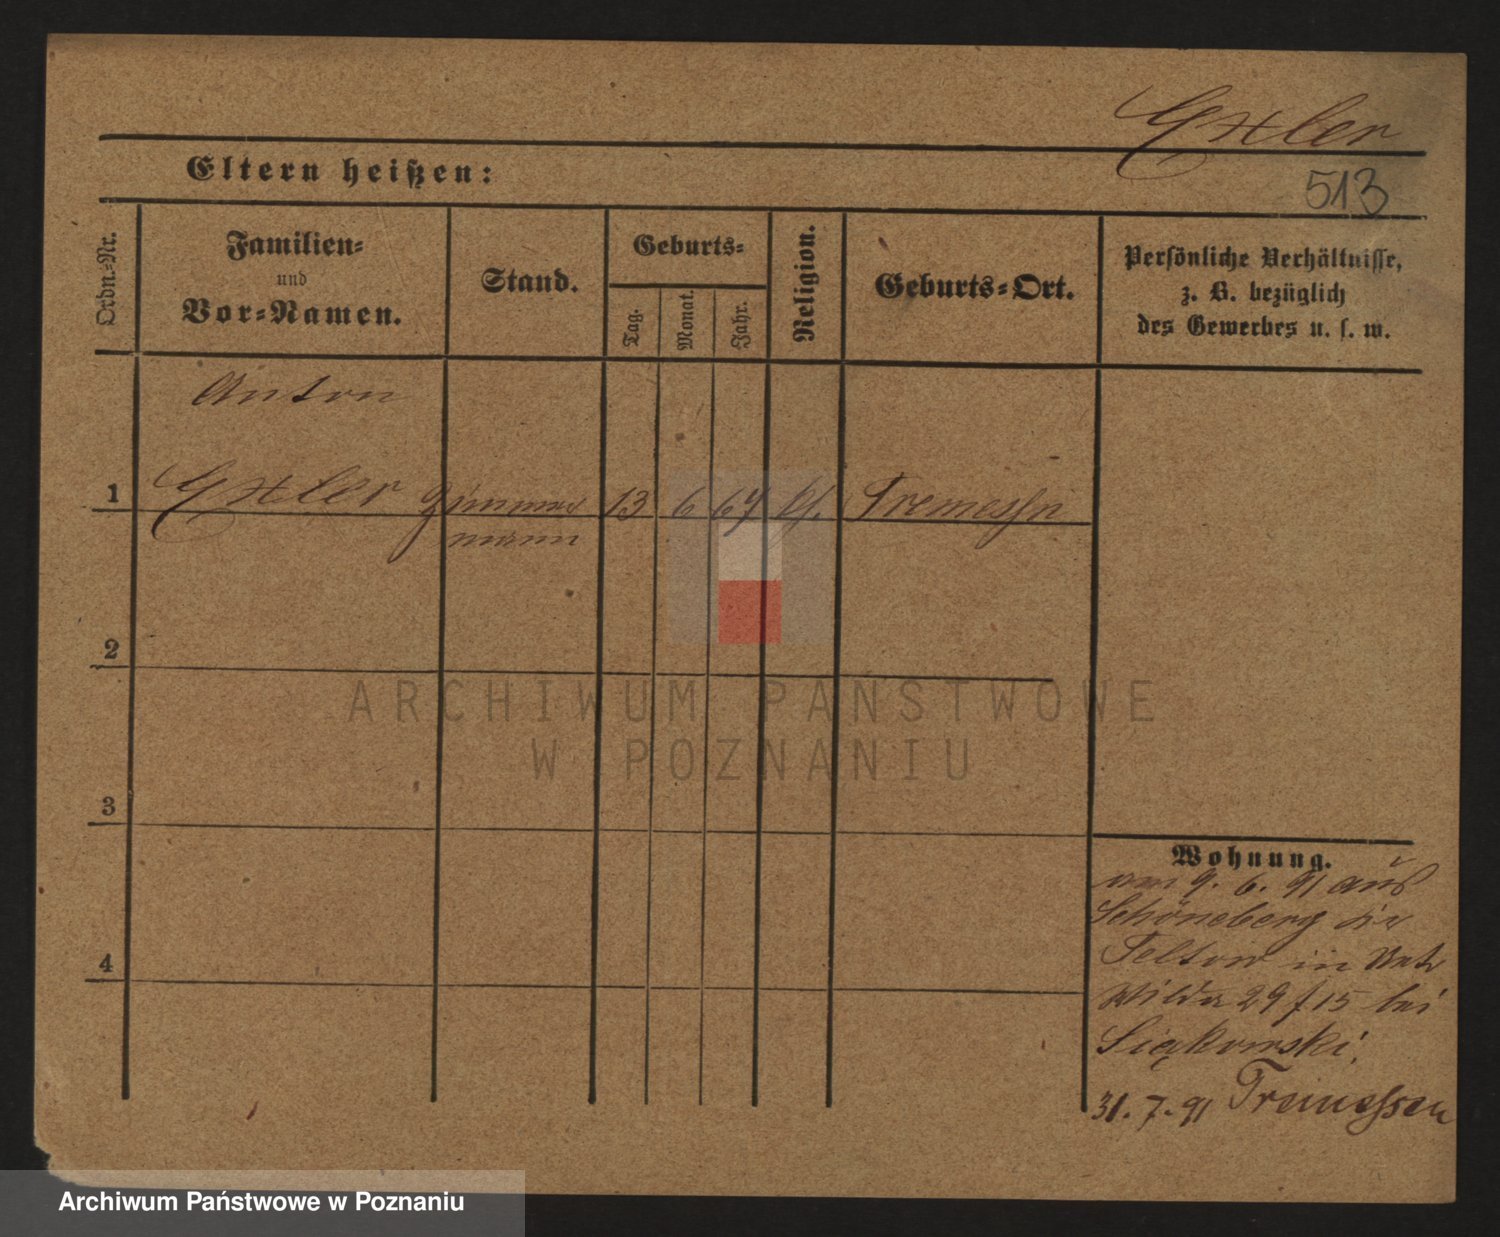 Exler
513
Eltern heißen:
Ordn.-Nr.
Familien-
und
Vor-Namen.
Stand.
Geburts-
Tag.
Monat.
Jahr.
Religion.
Geburts-Ort.
Persönliche Verhältnisse,
z. B. bezüglich
des Gewerbes u. s. w.
Anton
1 Exler Zimmer 13 6 67 kh. Tremessen
mann
2
3
4
Wohnung.
am 9. 6. 91 aus
Schöneberg
Teltow in Unt
Wilda 29 f 15 bei
Siąkowski.
31. 7. 91 Tremessen
ARCHIWUM PAŃSTWOWE
W POZNANIU
Archiwum Państwowe w Poznaniu